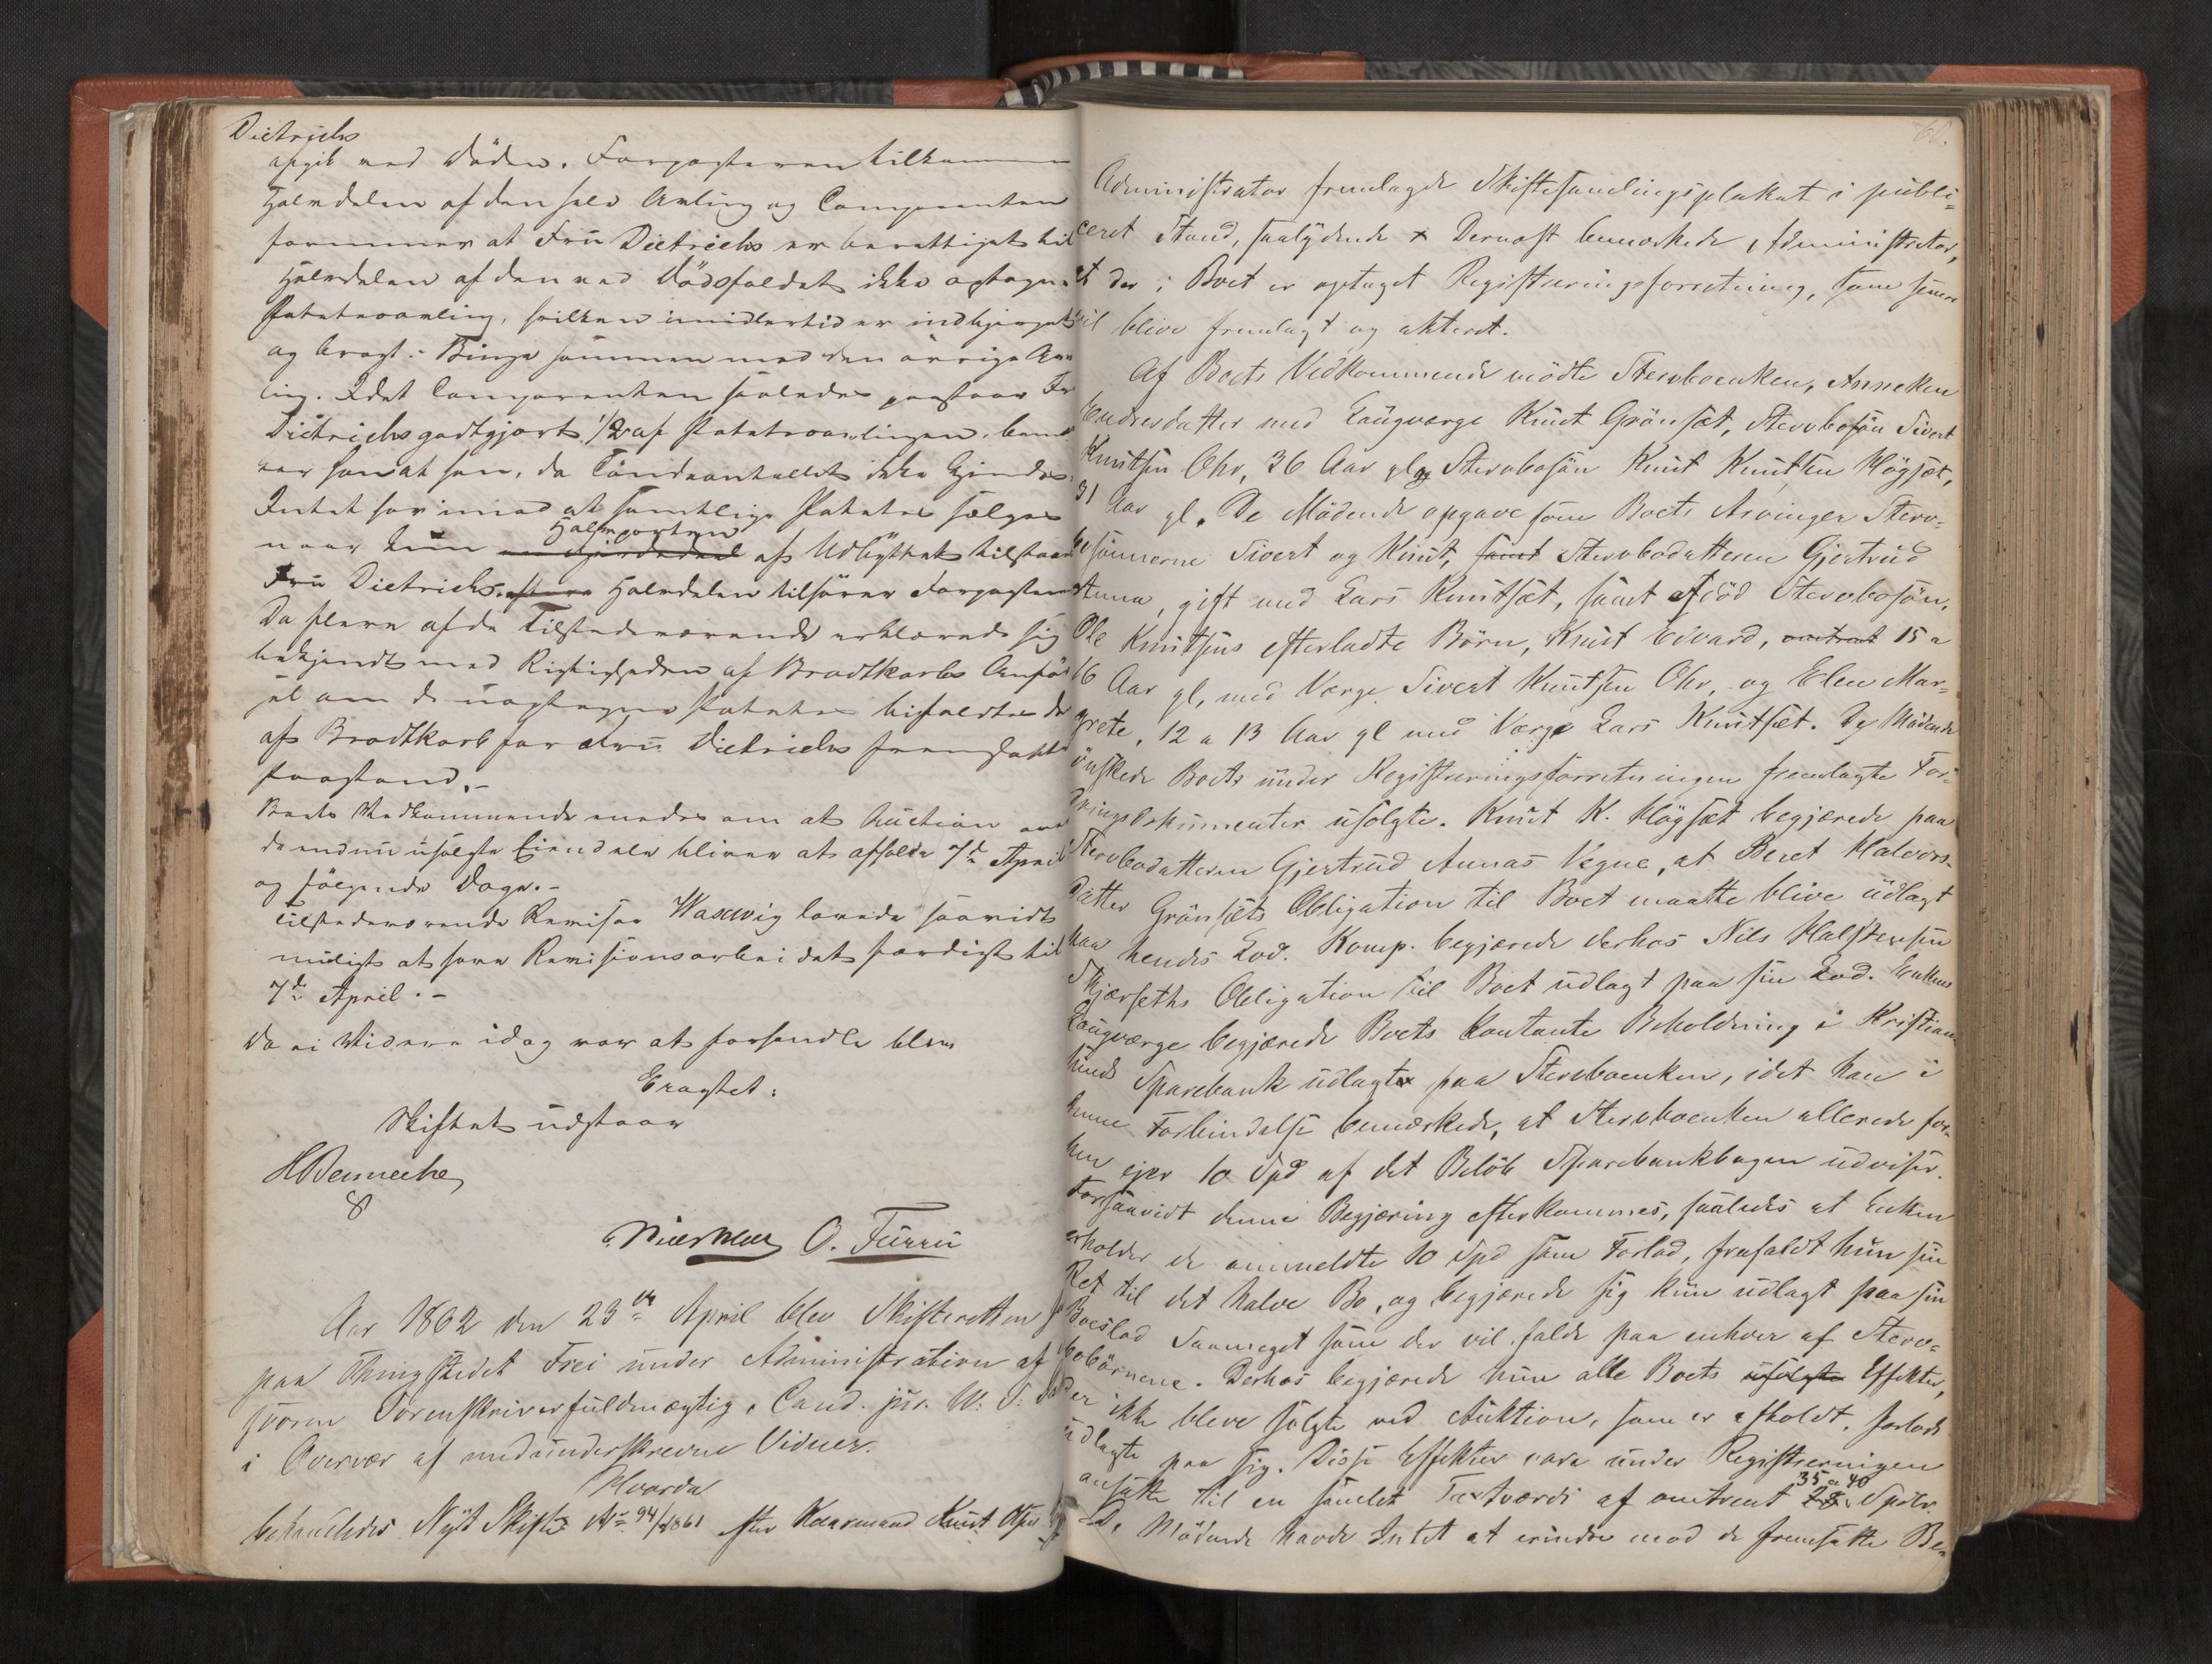 Dietrichs
afgik ved Döden. Forpagteren tilkommer
Halvdelen af den hele Avling og Comparenten
formener at Fru Dietrichs er berettiget til
Halvdelen af den ved Dödsfaldet ikke optagne
Potetesavling, hvilken imidlertid er indhjerget
og bragt i Binge sammen med den övrige Av-
ling. Idet Comparenten saaledes paastaar Fr
Dietrichs godtgjort 1/2 af Potetesavlingen, bemær
ker han at han, da Töndeantallet ikke kjendes
Intet har imod at samtlige Poteter sælges
naar kun Halvparten af Udbyttet tilstaaes
Fru Dietrichs. Halvdelen tilhører Forpagteren
Da flere af de Tilstedeværende erklærede sig
bekjendt med Rigtigheden af Brodtkorbs Anför
sel om de uoptagne Poteter bifaldtes de
af Brodtkorb for Fru Dietrichs fremsatte
Paastand.-
Boets Vedkommende enedes om at Auction over
de endnu usolgte Eiendele bliver at afholde 7de April
og fölgende Dage.-
Tilstedeværende Revisor Wasevig lovede saavidt
muligt at have Revisionsarbeidet færdigt til
7de April.-
Da ei Videre idag var at forhandle blev
Eragtet:
Skiftet udstaar
HBennecke
O. Furru
Aar 1862 den 23de April blev Skifteretten
paa Thingstedet Frei under Administration af
Sorenskriverfuldmægtig, Cand. jur. W. S.
i Overvær af medunderskrevne Vidner.
Hvorda
behandledes Nyt Skifte No 94/1861 efter Kaarmand Knut Olsen
60.
Administrator fremlagde Skiftesamlingsplakat i publi=
ceret Stand, saalydende x Dernæst bemærkede Administrator,
at der i Boet er optaget Registreringsforretning, som senere
vil blive fremlagt og akteret.
Af Boets Vedkommende mödte Stervboenken, Anneken
Endresdatter med Laugværge Knut Grönset, Stervbosön Sivert
Knutsen Ohr, 36 Aar gl og Stervbosön Knut Knutsen Högset,
31 Aar gl. De Mödende opgave som Boets Arvinger Sterv-
bosönnerne Sivert og Knut, samt Stervbodatteren Gjertrud
Anna, gift med Lars Knutset, samt afdöd Stervbosön,
Ole Knutsens efterladte Börn, Knut Edvard, omtrent 15 a
16 Aar gl, med Værge Sivert Knutsen Ohr, og Elen Mar=
grete, 12 a 13 Aar gl med Værge Lars Knutset. De Mödende
önskede Boets under Registreringsforretningen fremlagte For-
dringsdokumenter usolgte. Knut K. Högset begjærede paa
Stervbodatteren Gjertrud Annas Vegne, at Beret Halvors-
Datter Grönsets Obligation til Boet maatte blive udlagt
paa hendes Lod. Komp. begjærede derhos Nils Halstensen
Skjærseths Obligation til Boet udlagt paa sin Lod. Enkens
Laugværge begjærede Boets kontante Beholdning i Kristian
sunds Sparebank udlagt paa Stervboenken, idet han i
denne Forbindelse bemærkede, at Stervboenken allerede for-
hen ejer 10 Spd af det Belöb Sparebankbogen udviser.
Forsaavidt denne Begjæring efterkommes, saaledes at Enken
erholder de anmeldte 10 Spd som Forlod, frafaldt hun sin
Ret til det halve Bo, og begjærede sig kun udlagt paa sin
Boeslod saameget som der vil falde paa enhver af Sterv=
bobörnene. Derhos begjærede hun alle Boets usolgte Effekter,
der ikke bleve solgte ved Auktion, som er afholdt, forlods
udlagte paa sig. Disse Effekter vare under Registreringen
ansatte til en samlet Taxtværdi af omtrent 35 a 40 Spdlr.
De Mödende havde Intet at erindre mod de fremsatte Be=